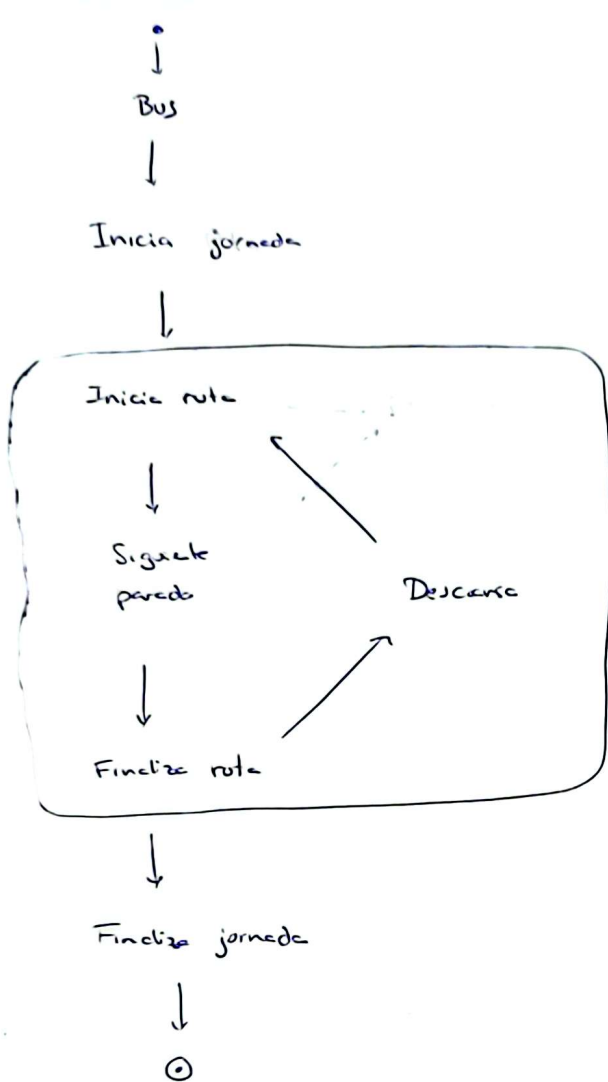 Bus
Inicia jornada
Inicia ruta
Siguiente
parada
Descansa
Finaliza ruta
Finaliza jornada